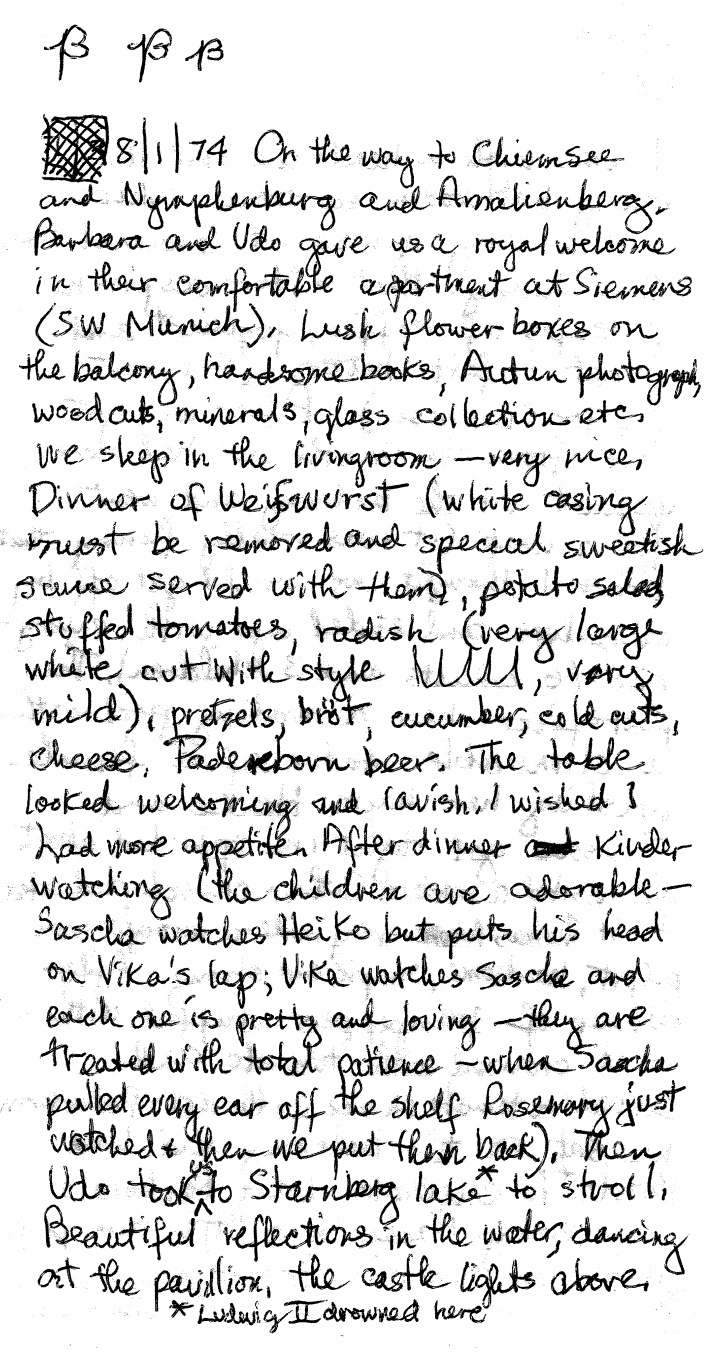 ß ß ß
8/1/74 On the way to Chiemsee
and Nymphenburg and Amalienberg.
Barbara and Udo gave us a royal welcome
in their comfortable apartment at Siemens
(SW Munich). Lush flower boxes on
the balcony, handsome books, Autun photographs,
woodcuts, minerals, glass collection etc.
We sleep in the livingroom — very nice.
Dinner of Weißwurst (white casing
must be removed and special sweetish
sauce served with them), potato salad,
stuffed tomatoes, radish (very large
white cut with style, very
mild), pretzels, bröt, cucumber, cold cuts,
cheese, Paderborn beer. The table
looked welcoming and lavish. I wished I
had more appetite. After dinner Kinder
watching (the children are adorable —
Sascha watches Heiko but puts his head
on Vika's lap; Vika watches Sascha and
each one is pretty and loving — they are
treated with total patience — when Sascha
pulled every ear off the shelf Rosemary just
watched & then we put them back). Then
Udo took us to Starnberg lake* to stroll.
Beautiful reflections in the water, dancing
at the pavillion, the castle lights above.
*Ludwig II drowned here